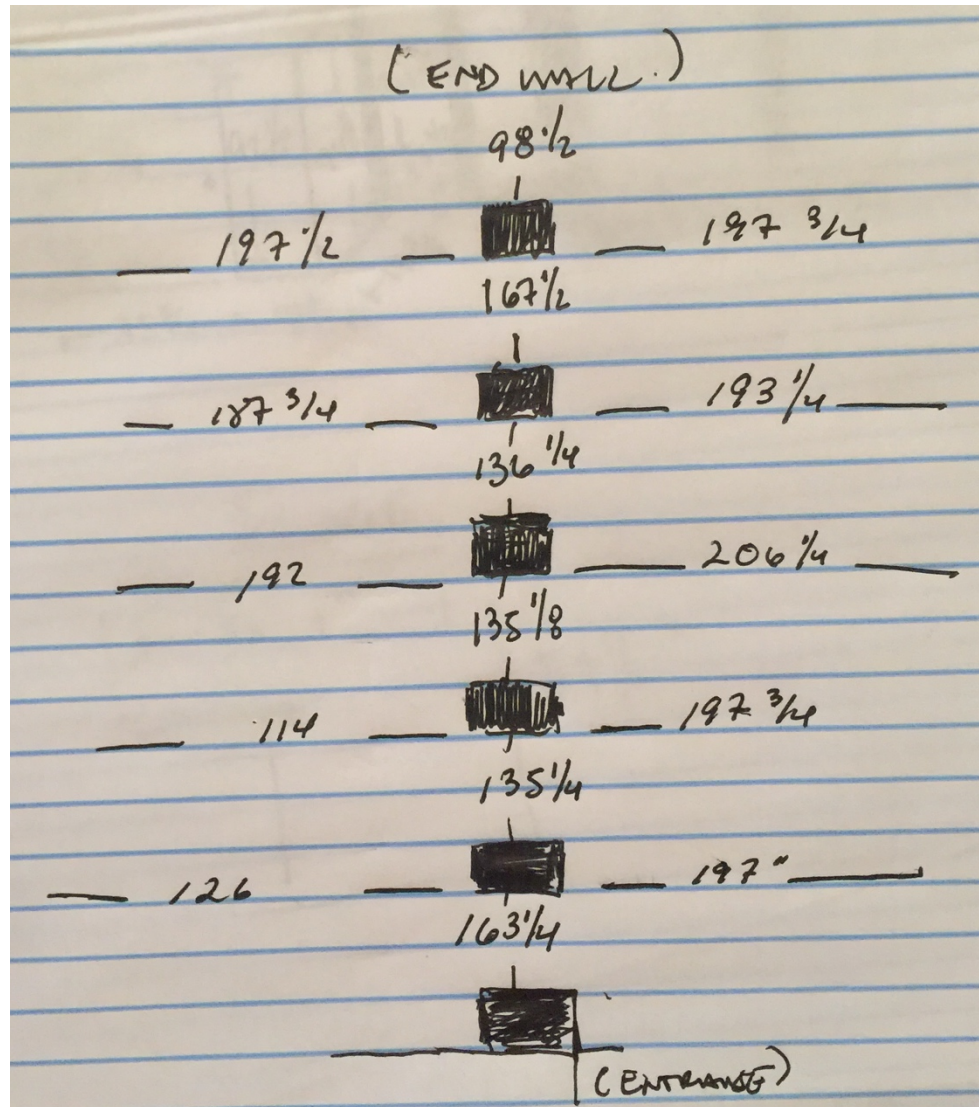 (END WALL.)
98 1/2
197 1/2 197 3/4
167 1/2
187 3/4 193 1/4
136 1/4
192 206 1/4
135 1/8
114 197 3/4
135 1/4
126 197"
163 1/4
(ENTRANSE)